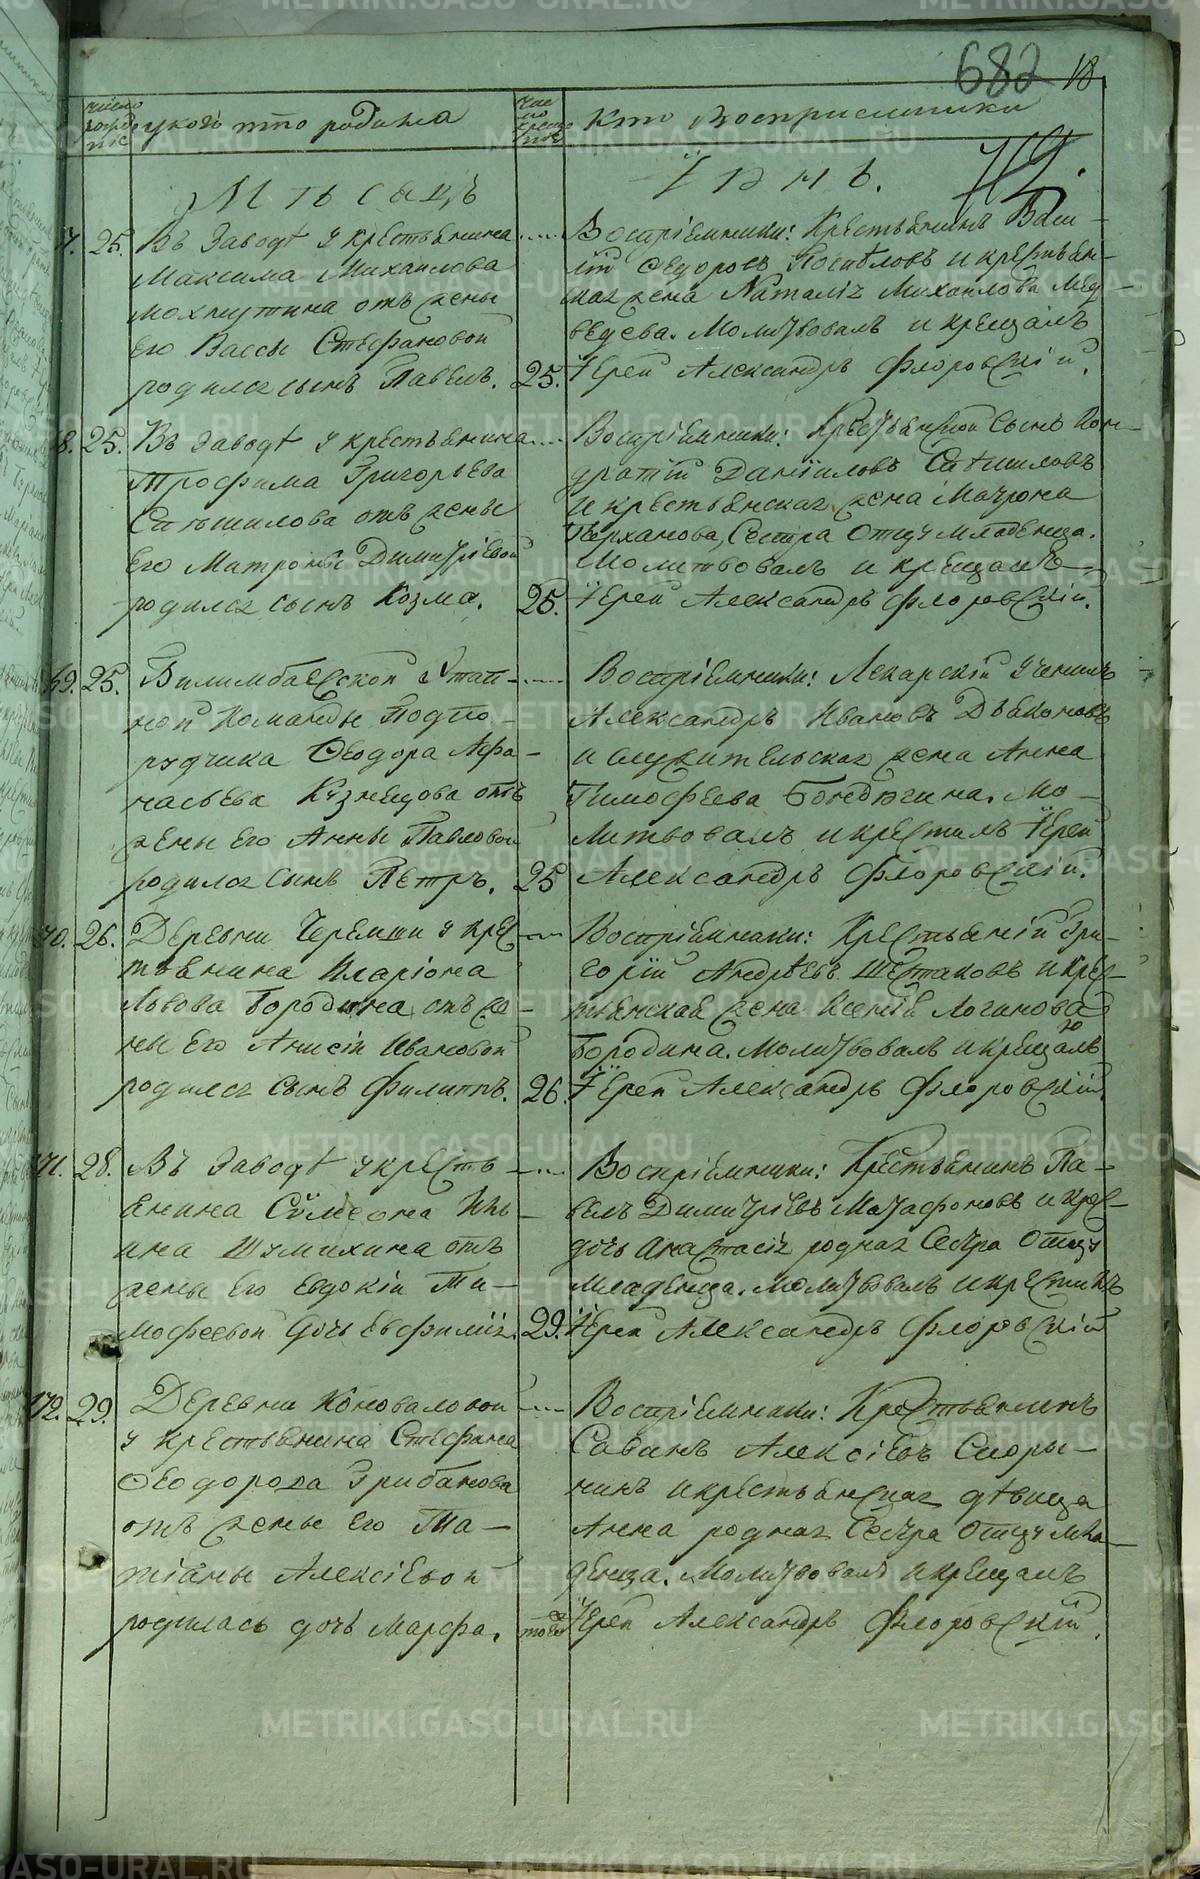 682 18
число рождения
у кого кто родился
число крещения
Кто Восприемники
Мѣсяцъ
Іюнь.
7. 25. Въ Заводѣ у крестьянина
Максима Михаилова
Мохнутина отъ жены
Его Вассы Стефановой
родился сынъ Павелъ. 25.
Воспріемники: Крестьянинъ Васи-
лій Ѳедоровъ Поспѣловъ и крестьян-
ская жена Наталія Михаилова Мед-
ведева. Молитвовалъ и крещалъ
Іерей Александръ Флоровскій.
8. 25. Въ Заводѣ у крестьянина
Трофима Григорьева
отъ жены
Его Матроны Димитріевой
родился сынъ Козма. 25.
Воспріемники: Крестьянской сынъ Кон-
дратій Даніиловъ
и крестьянская жена Матрона
Сестра Отцу младенца.
Молитвовалъ и крещалъ
Іерей Александръ Флоровскій.
69. 25. Билимбаевской Этап-
ной Команды Подпо-
ручика Ѳеодора Афа-
насьева Кузнецова отъ
жены Его Анны Павловой
родился сынъ Петръ. 25
Воспріемники: Лекарскій ученикъ
Александръ Ивановъ Дьяконовъ
и служительская жена Анна
Тимофеева Бондюгина. Мо-
литвовалъ и крестилъ Іерей
Александръ Флоровскій.
70. 26. Деревни Черемши у крес-
тьянина Иларіона
Львова Бородина отъ же-
ны Его Анисіи Ивановой
родился сынъ Филиппъ. 26.
Воспріемники: Крестьяній Гри-
горій Андрѣевъ Шестаковъ и крес-
тьянская жена Ксенія Логинова
Бородина. Молитвовалъ и крещалъ
Іерей Александръ Флоровскій.
171. 28. Въ Заводѣ у кресть-
янина Сѵмеона Иль-
ина Шумихина отъ
жены Его Евдокіи Ти-
мофеевой дочь Евфимія. 29.
Воспріемники: Крестьянинъ Па-
велъ Димитріевъ Матафоновъ и крес-
дочь Анастасія родная Сестра Отцу
Младенца. Молитвовалъ и крестилъ
Іерей Александръ Флоровскій
172. 29. Деревни Коноваловой
у крестьянина Стефана
Ѳеодорова Грибанова
отъ жены Его Та-
тіаны Алексіевой
родилась дочь Марфа. тоже
Воспріемники: Крестьянинъ
Савинъ Алексіевъ Скоры-
нинъ и крестьянская дѣвица
Анна родная Сестра Отцу мла-
денца. Молитвовалъ и крещалъ
Іерей Александръ Флоровскій.
METRIKI.GASO-URAL.RU